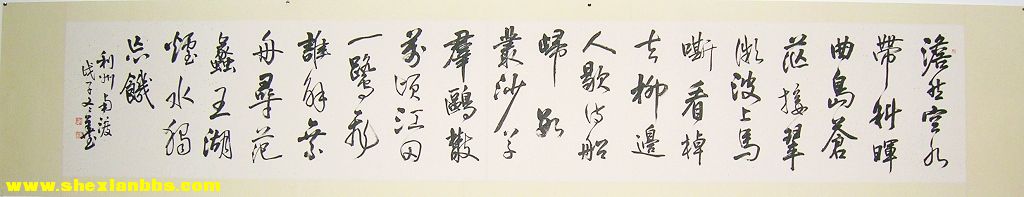 澹然空水
帶斜暉
曲島蒼
茫接翠
微波上馬
嘶看棹
去柳邊
人歇待船
歸數
叢沙草
羣鷗散
萬頃江田
一鷺飛
誰解乘
舟尋范
蠡五湖
煙水獨
忘饑
利州南渡
戊子冬
www.shexianbbs.com